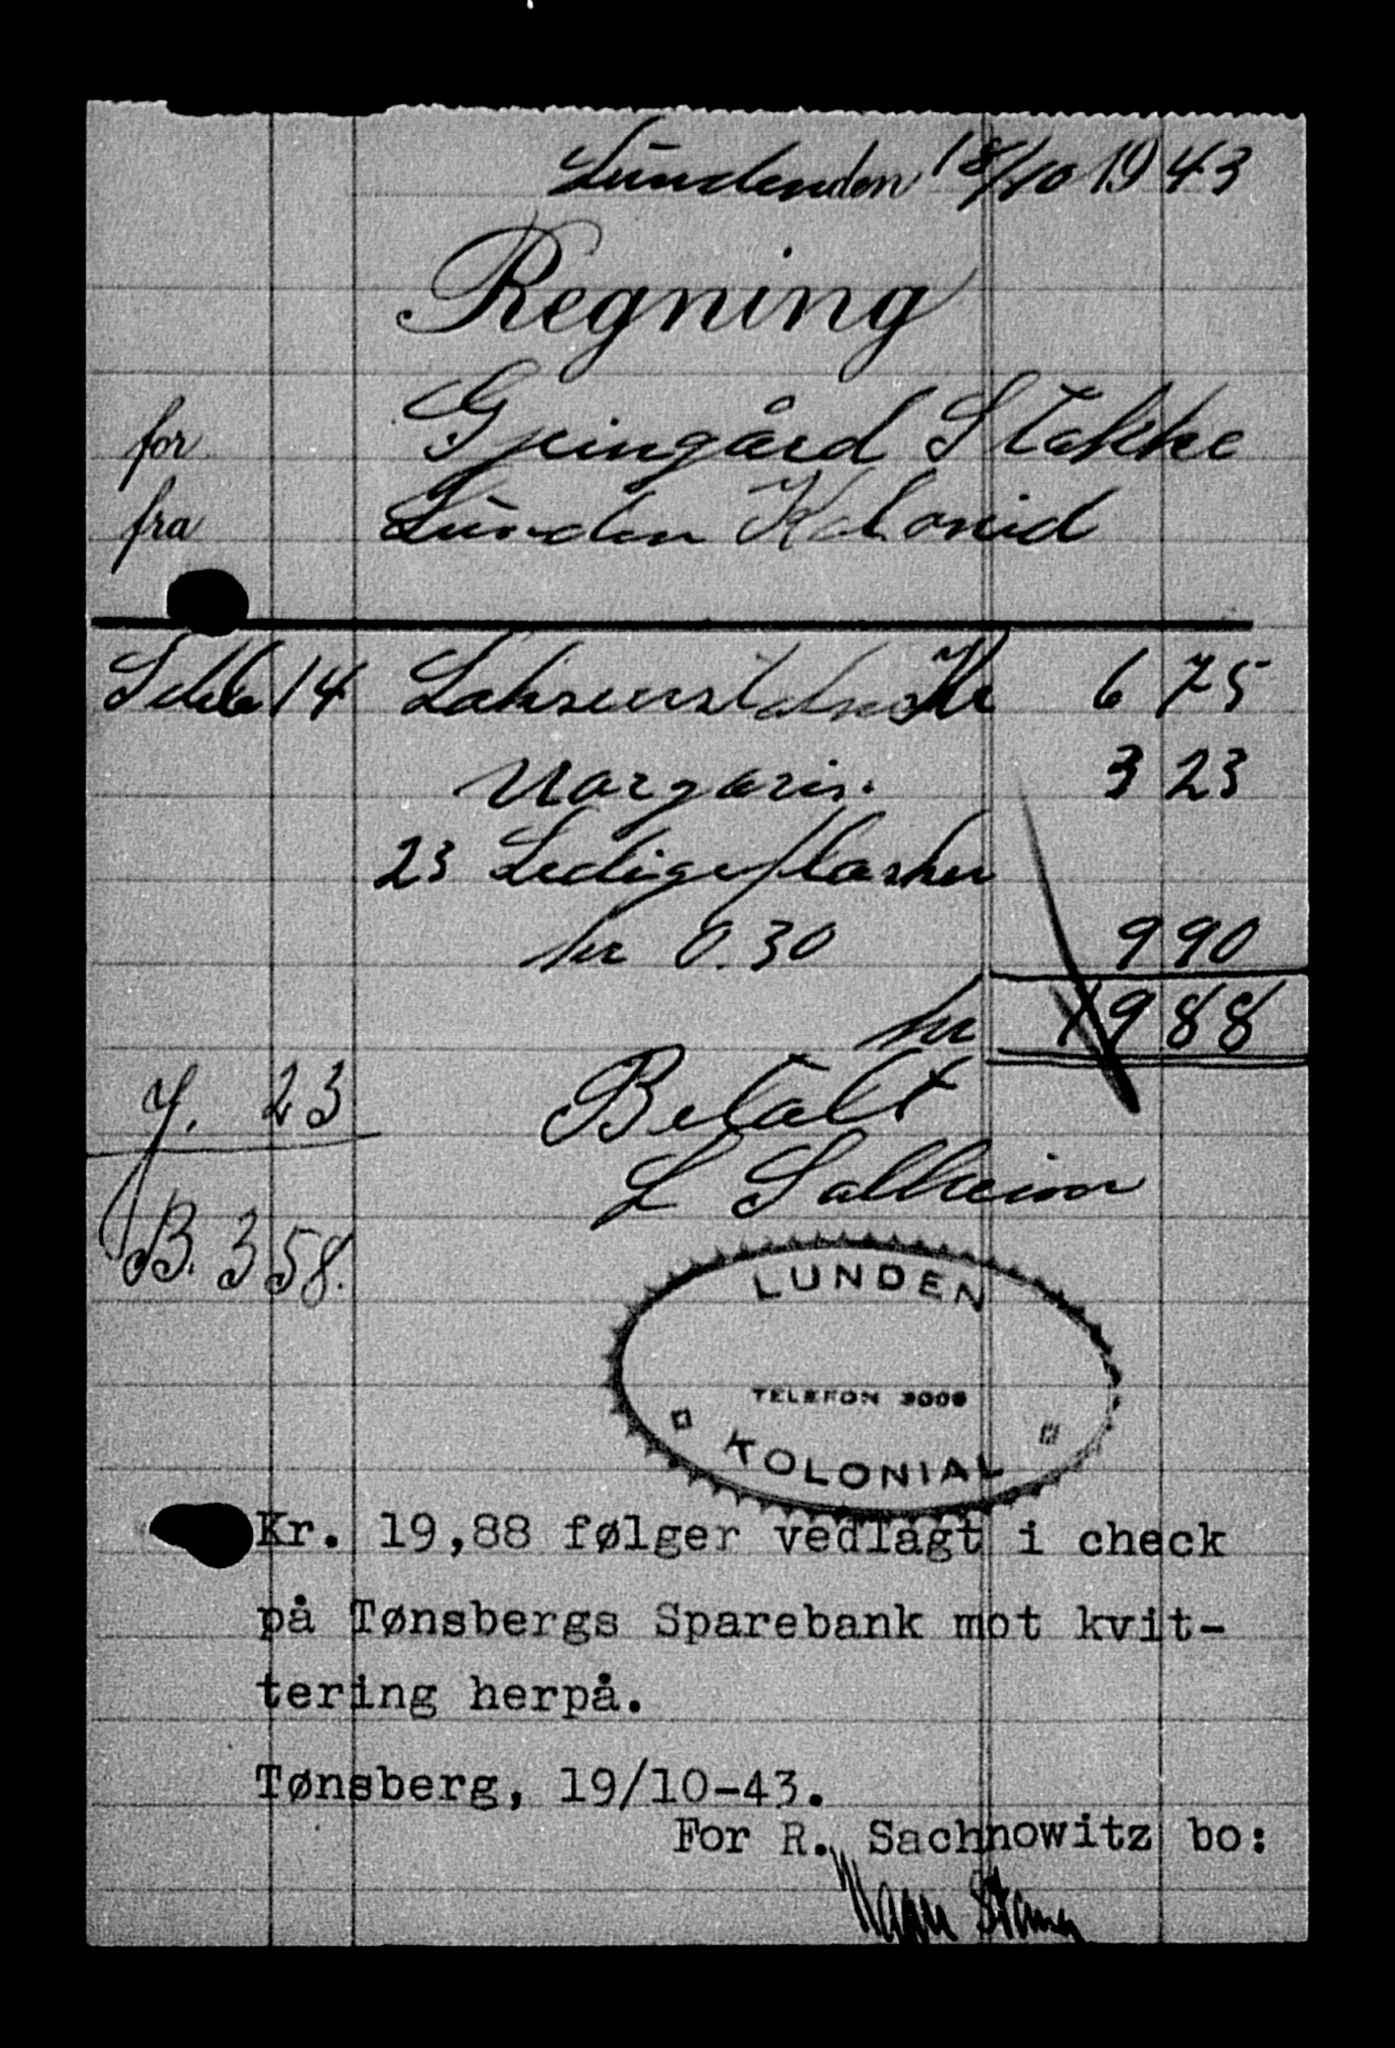 Lunden den 18/10 1943
Regning
for Gjeingård Stokke
fra Lunden Kolonial
14 Kr 6 75
Margarin. 3 23
23 Ledige flasker
kr 0.30 9 90
kr 19 88
J. 23 Betalt
L Solheim
B. 358.
LUNDEN
TELEFON
KOLONIAL
Kr. 19,88 følger vedlagt i check
på Tønsbergs Sparebank mot kvit-
tering herpå.
Tønsberg, 19/10-43.
For R. Sachnowitz bo:
Stang